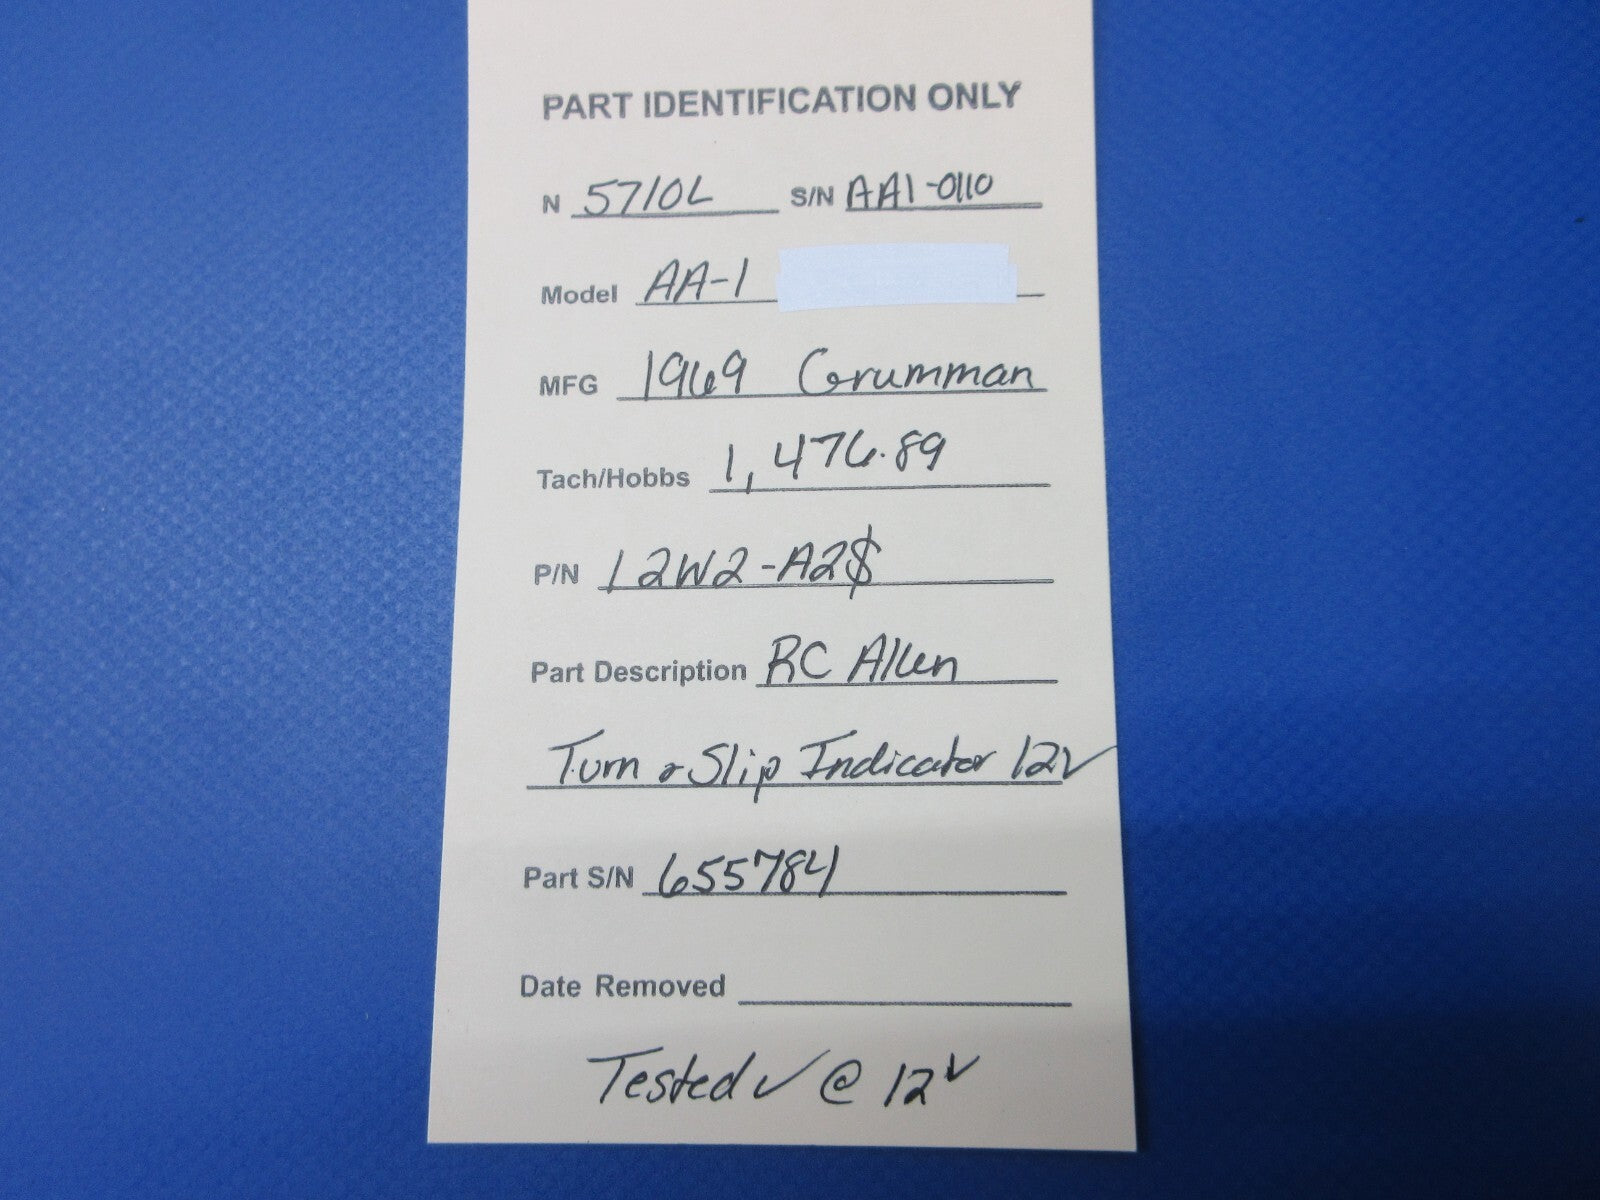 PART IDENTIFICATION ONLY
N 5710L S/N AA1-0110
Model AA-1
MFG 1969 Grumman
Tach/Hobbs 1,476.89
P/N 12W2-A2$
Part Description RC Allen
Turn & Slip Indicator 12V
Part S/N 655784
Date Removed
Tested ✓ @ 12V